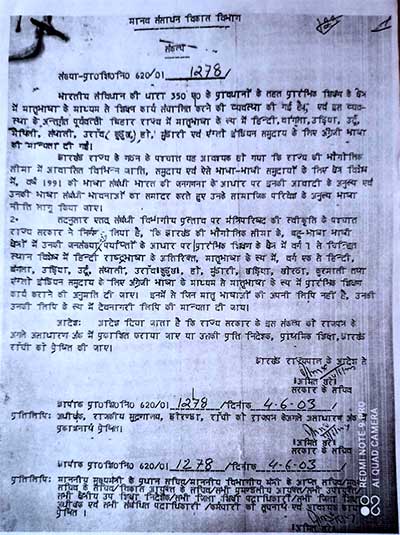 मानव संसाधन विकास विभाग
संकल्प
संख्या-प्रा0शि0नि0 620/01 1278/
भारतीय संविधान की धारा 350 ए0 के प्रावधानों के तहत प्रारंभिक शिक्षण के क्षेत्र
में मातृभाषा के माध्यम से शिक्षण कार्य संचालित करने की व्यवस्था की गई है, एवं इस व्यव-
स्था के अन्तर्गत पूर्ववर्ती बिहार राज्य में मातृभाषा के रूप में हिन्दी, बांगला, उड़िया, उर्दू,
मैथिली, संथाली, उरांव (कुडुख), हो, मुंडारी एवं एंग्लो इंडियन समुदाय के लिए अंग्रेजी भाषा
की मान्यता दी गई।
झारखंड राज्य के गठन के पश्चात यह आवश्यक हो गया कि राज्य की भौगोलिक
सीमा में आवासित विभिन्न जाति, समुदाय एवं ऐसे भाषा-भाषी समुदायों के लिए
में, वर्ष 1991 की भाषा संबंधी भारत की जनगणना के आधार पर इनकी आबादी के अनुरूप एवं
उनकी भाषा संबंधी भावनाओं का समादर करते हुए उनके सामाजिक परिवेश के अनुरूप भाषा
नीति लागू किया जाए।
2- तदनुसार एतद् संबंधी विभागीय प्रस्ताव पर मंत्रिपरिषद की स्वीकृति के पश्चात
राज्य सरकार ने निर्णय लिया है, कि झारखंड की भौगोलिक सीमा के, बहु-भाषा भाषी
क्षेत्रों में उनकी जनसंख्या पर्याप्तता के आधार पर प्रारंभिक शिक्षण के क्षेत्र में वर्ग 1 से चिन्हित
स्थान विशेष में हिन्दी राष्ट्रभाषा के अतिरिक्त, मातृभाषा के रूप में, वर्ग एक से हिन्दी,
बंगला, उड़िया, उर्दू, संथाली, उरांव(कुडुख), हो, मुंडारी, खड़िया, खोरठा, कुरमाली तथा
एंग्लो इंडियन समुदाय के लिए अंग्रेजी भाषा के माध्यम से मातृभाषा के रूप में प्रारंभिक शिक्षण
कार्य कराने की अनुमति दी जाए। इनमें से जिन मातृ भाषाओं की अपनी लिपि नहीं है, उनकी
उनकी लिपि के रूप में देवनागरी लिपि की मान्यता दी जाय।
आदेश: आदेश दिया जाता है कि राज्य सरकार के इस संकल्प को राजपत्र के
अगले असाधारण अंक में प्रकाशित कराया जाए या उसकी प्रति निदेशक, प्राथमिक शिक्षा, झारखंड
राँची को प्रेषित की जाए।
झारखंड राज्यपाल के आदेश से
अमित खरे
सरकार के सचिव
ज्ञापांक प्रा0शि0नि0 620/01 1278 /दिनांक 4.6.03/
प्रतिलिपि: अधीक्षक, राजकीय मुद्रणालय, डोरण्डा, राँची को राजपत्र के अगले असाधारण अंक में
प्रकाशनार्थ प्रेषित।
अमित खरे
सरकार के सचिव
ज्ञापांक प्रा0शि0नि0 620/01 1278 /दिनांक 4.6.03/
प्रतिलिपि: माननीय मुख्यमंत्री के प्रधान सचिव/माननीय विभागीय मंत्री के आप्त सचिव/
प्रेषित।
REDMI NOTE 8 PRO
AI QUAD CAMERA